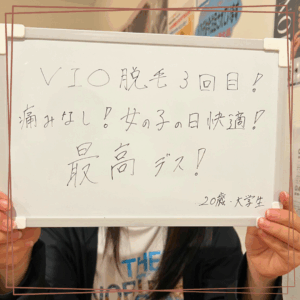 VIO脱毛3回目!
痛みなし!女の子の日快適!
最高デス!
20歳・大学生
THE